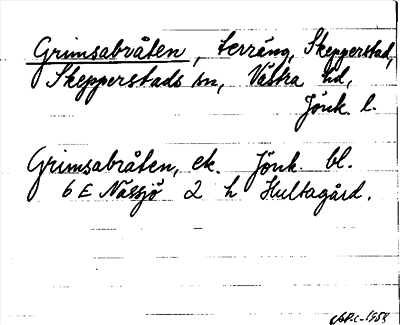 Grimsabråten, terräng, Skepperstad,
Skepperstads sn, Västra hd,
Jönk. l.
Grimsabråten, ek. Jönk bl.
6 E Nässjö 2 h Hultagård.